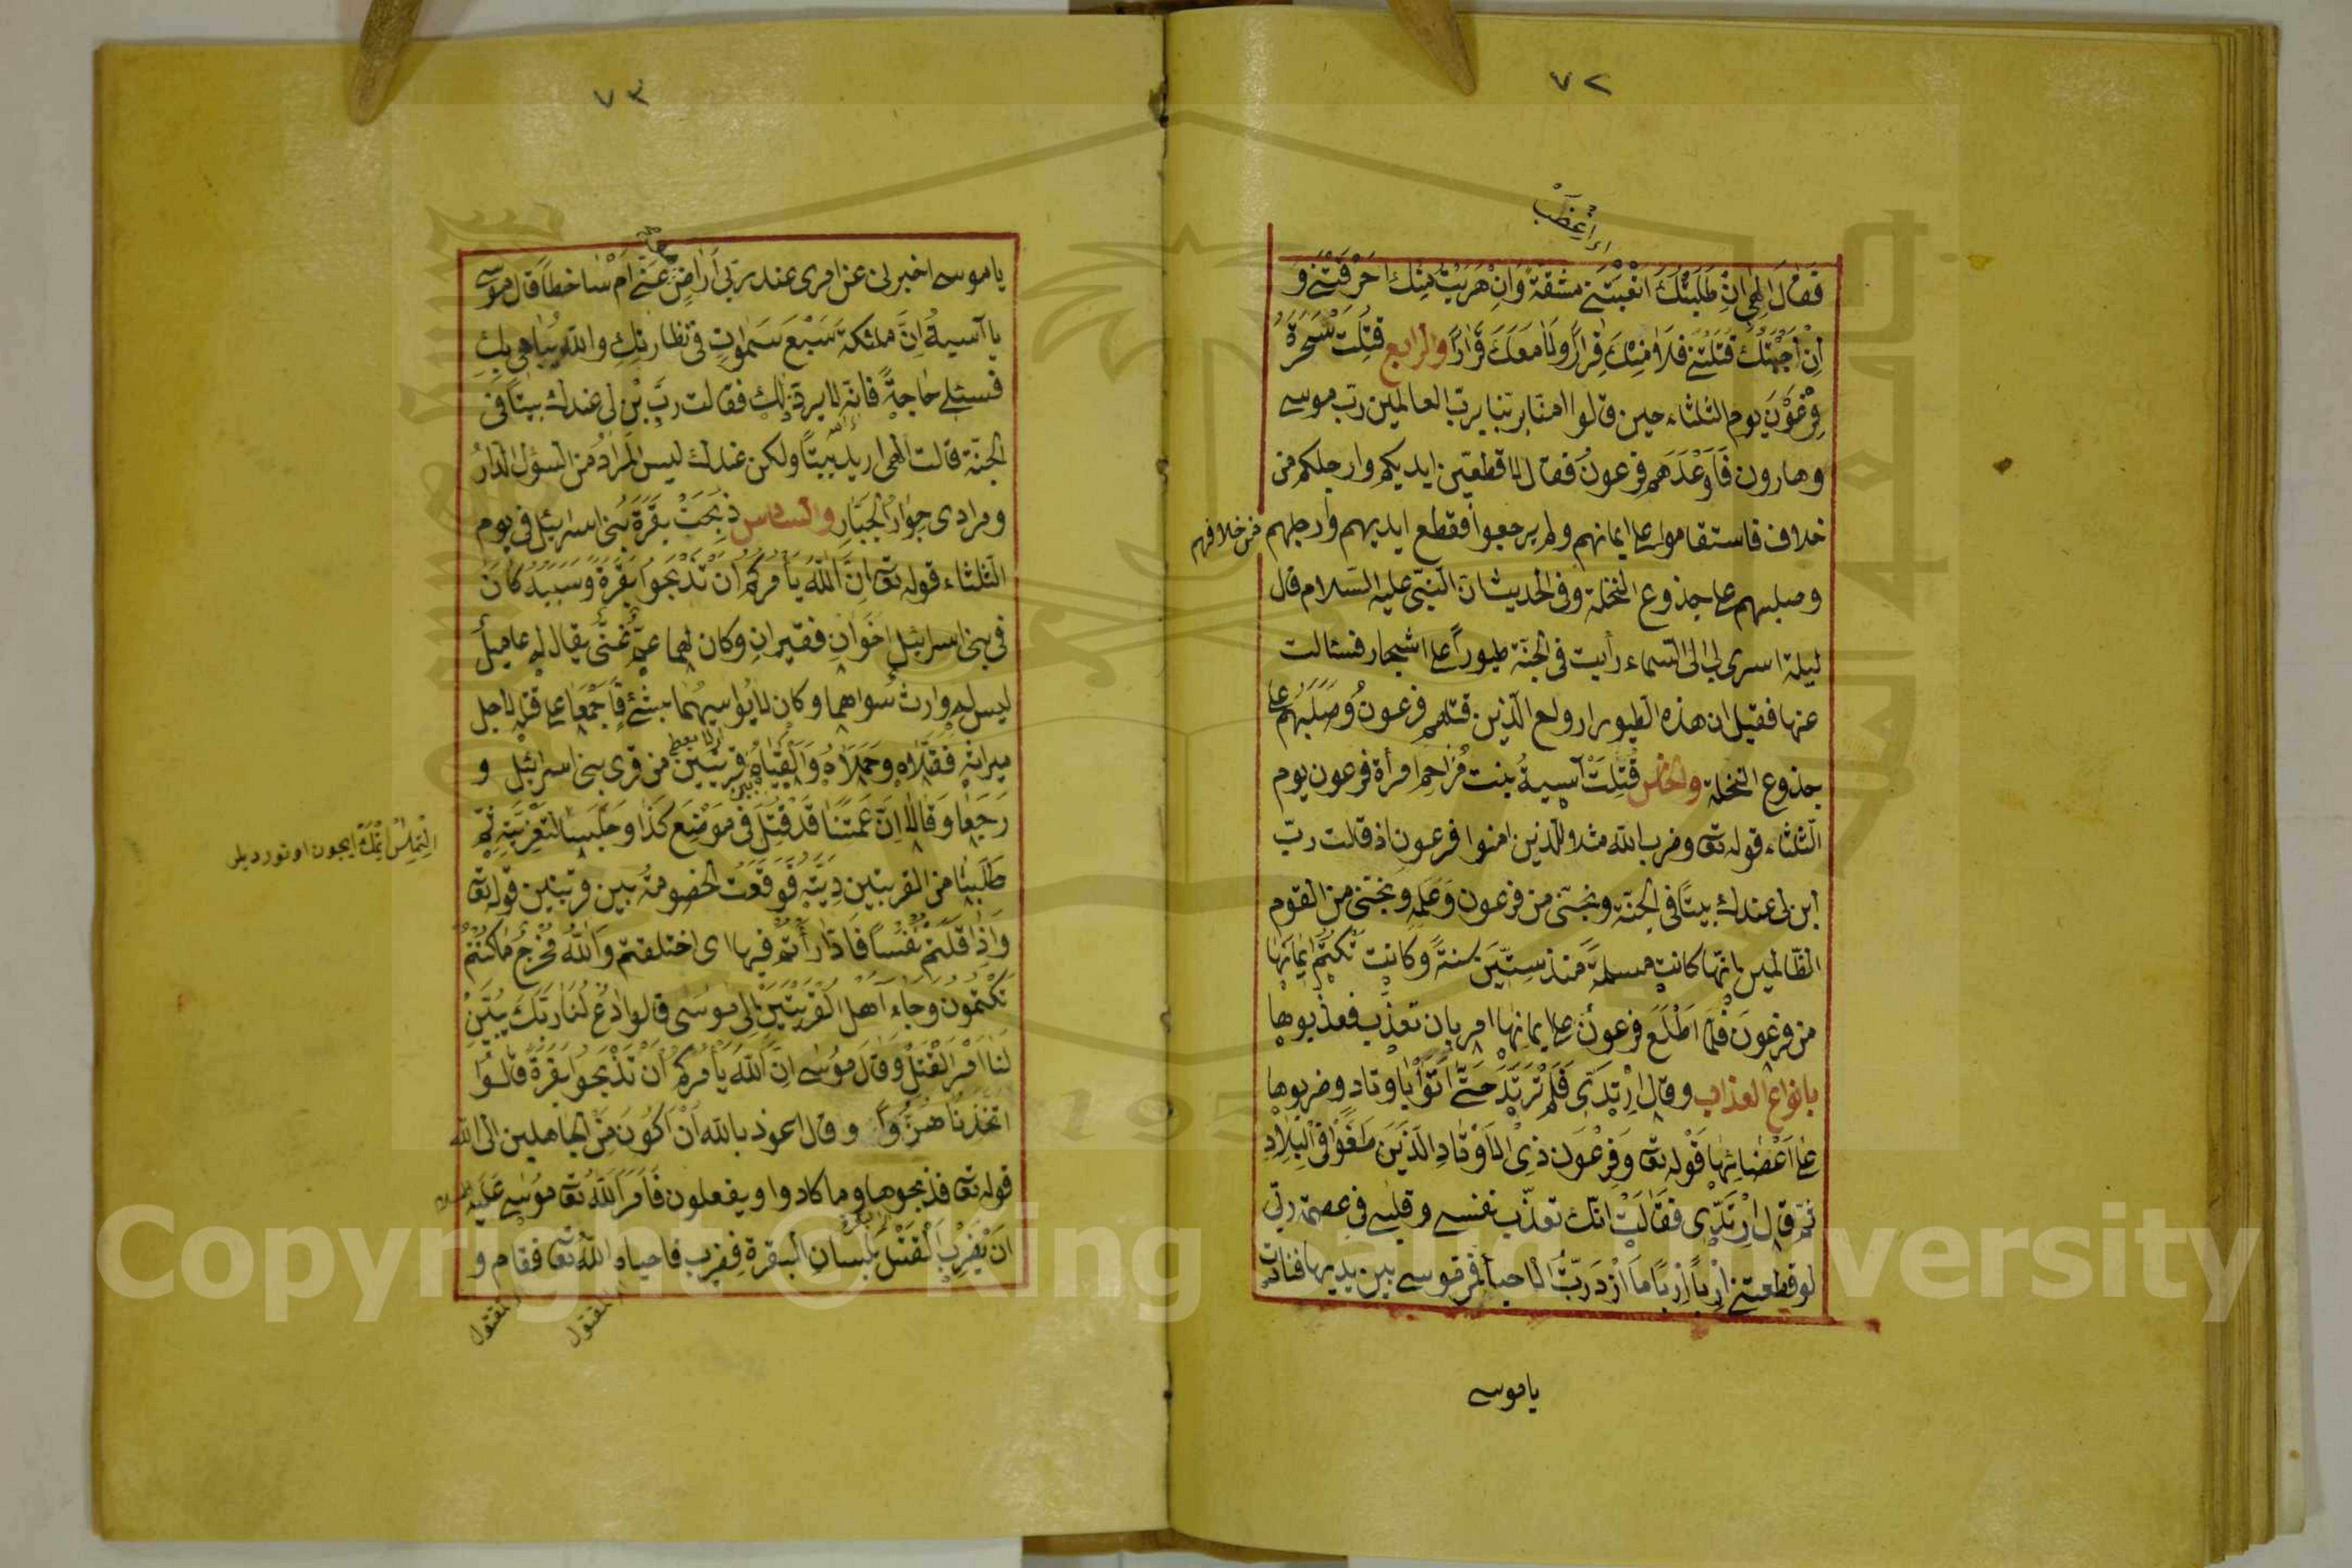 ٧٢
فَقَالَ اِلٰهِى اِنْ طَلَبْتُكَ اتْعَبْتَنِى مشقةً وَاِنْ هَرَبْتُ مِنْكَ اَحْرَقْتَنِى وَ
اِنْ اَحْبَبْتُكَ قَتَلْتَنِى فَلَا مِنْكَ فِرَارًا وَلَا مَعَكَ قَرَارًا والرابع قُتِلَتْ سَحَرَةُ
فِرْعَوْنَ يوم الثلثاء حين قالوا امنا بربنا برب العالمين رب موسى
وهارون فَاَوْعَدَهم فرعونُ فقال لاقطعنّ ايديكم وارجلكم من
خلاف فاستقاموا على ايمانهم ولم يرجعوا فقطع ايديهم وارجلهم من خلافهم
وصلبهم على جذوع النخلة وفى الحديث ان النبى عليه السلام قال
ليلة اسرى بى الى السماء رأيت فى الجنة طيوراً على اشجار فسئالت
عنها فقيل ان هذه الطيور ارواح الذين قتلهم فرعونُ وَصَلَبَهم على
جذوع النخلة والخامس قُتِلَتْ آسيةُ بنت مُزَاحِم امرأة فرعون يوم
الثلثاء قوله تعا وضرب الله مثلا للذين امنوا امرأة فرعون اذ قالت ربّ
ابن لى عندك بيتًا فى الجنة ونجنى من فرعون وَعَمَلِه وَنَجّنى من القوم
الظالمين بانها كانت مسلمةً منذ سِتِّينَ سنةً وكانت تَكْتُمُ اِيمَانَها
من فرعونَ فلما اطْلَعَ فرعونُ على ايمانها امر بان تعذّب فعذبوها
بانواع العذاب وقال اِرْتَدِّى فَلَمْ تَرْتَدَّ حَتَّى اَتَوْا باوتاد وضربوها
على اَعْضَائِهَا قوله تعا وَفِرْعَوْنَ ذِى الْاَوْتَادِ الَّذِينَ طَغَوْا فِى الْبِلَادِ
ثُمّ قال اِرْتَدِّى فَقَالَتْ انّك تعذّب نفسى وقلبى فى عصمة ربّى
لو قطعتنى اِرْبًا اِرْبًا مَا اَزْدَدتُ الا حبا فمر موسى بين يديها فنادت
يا موسى
٧٣
يا موسى اخبرنى عن امرى عند ربى أَرَاضٍ عَنّى اَمْ سَاخطًا قال موسى
يا آسيةُ اِنَّ ملئكة سَبْعَ سَمٰوَاتٍ فى نظارتكِ والله يُبَاهِى بِكِ
فسئلى حَاجةً فانه لا يردّ لك فقالت ربِّ ابْنِ لى عندك بيتًا فى
الجنة قالت الٰهى اريد بيتًا ولكن عندك ليس المرادُ من السؤل الدارُ
ومرادى جِوَارُ الجبَّارِ والسادس ذُبِحَتْ بَقَرَةُ بَنى اسرائيل فى يوم
الثلثاء قوله تعا اِنَّ اللّٰهَ يَأْمُرُكُمْ اَنْ تَذْبَحُوا بَقَرَةً وَسَبَبُهُ كَانَ
فى بنى اسرائيل اَخَوَانِ فقيرانِ وكان لهما عمٌّ غَنىٌّ يقال له عاميل
ليس له وارث سواهما وكان لا يُؤَاسِيهُمَا بشئ فَاَجْمَعَا على قتله لاجل
ميراثه فَقَتَلَاهُ وَحَمَلَاهُ وَاَلْقَيَاهُ بين قريتين من قرى بنى اسرائيل و
رَجَعَا وَقَالَا اِنَّ عَمَّنَا قَدْ قُتِلَ فى مَوْضِعِ كَذَا وجَلَسَا لتعزيته ثمّ
طَلَبَا من القريتين دِيَتَه فَوَقَعَت الخصومةُ بين قريتين قوله تعا
وَاِذْ قَتَلْتُمْ نَفْسًا فَادَّارَأْتُمْ فيها اى اختلقتم وَاللّٰهُ مُخْرِجٌ مَا كُنْتُمْ
تَكْتُمُونَ وَجَاءَ اَهْلُ الْقَرْيَتَيْنِ اِلَى مُوسَى قالوا ادْعُ لَنَا رَبَّكَ يُبَيِّنْ
لَنَا اَمْرَ الْقَتْلِ وَقَالَ مُوسٰى اِنَّ اللّٰهَ يَأْمُرُكُمْ اَنْ تَذْبَحُوا بَقَرَةً قَالُوا
اَتَتَّخِذُنَا هُزُوًا وقال اعوذ باللّٰه اَنْ اَكُونَ مِنَ الجاهلين الى اللّٰه
قوله تعا فذبحوها وما كادوا يفعلون فَاَمَرَ اللّٰهُ تعا موسى عليه السلام
اَنْ يَضْرِبَ الْقَتْلَ بِلِسَانِ البقرة فضرب فاحياه اللّٰه تعا فقام و
المقتول
المقتول